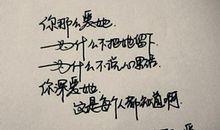 你那么爱她
为什么不把她留下
为什么不说心里话
你深爱她
这是每个人都知道啊